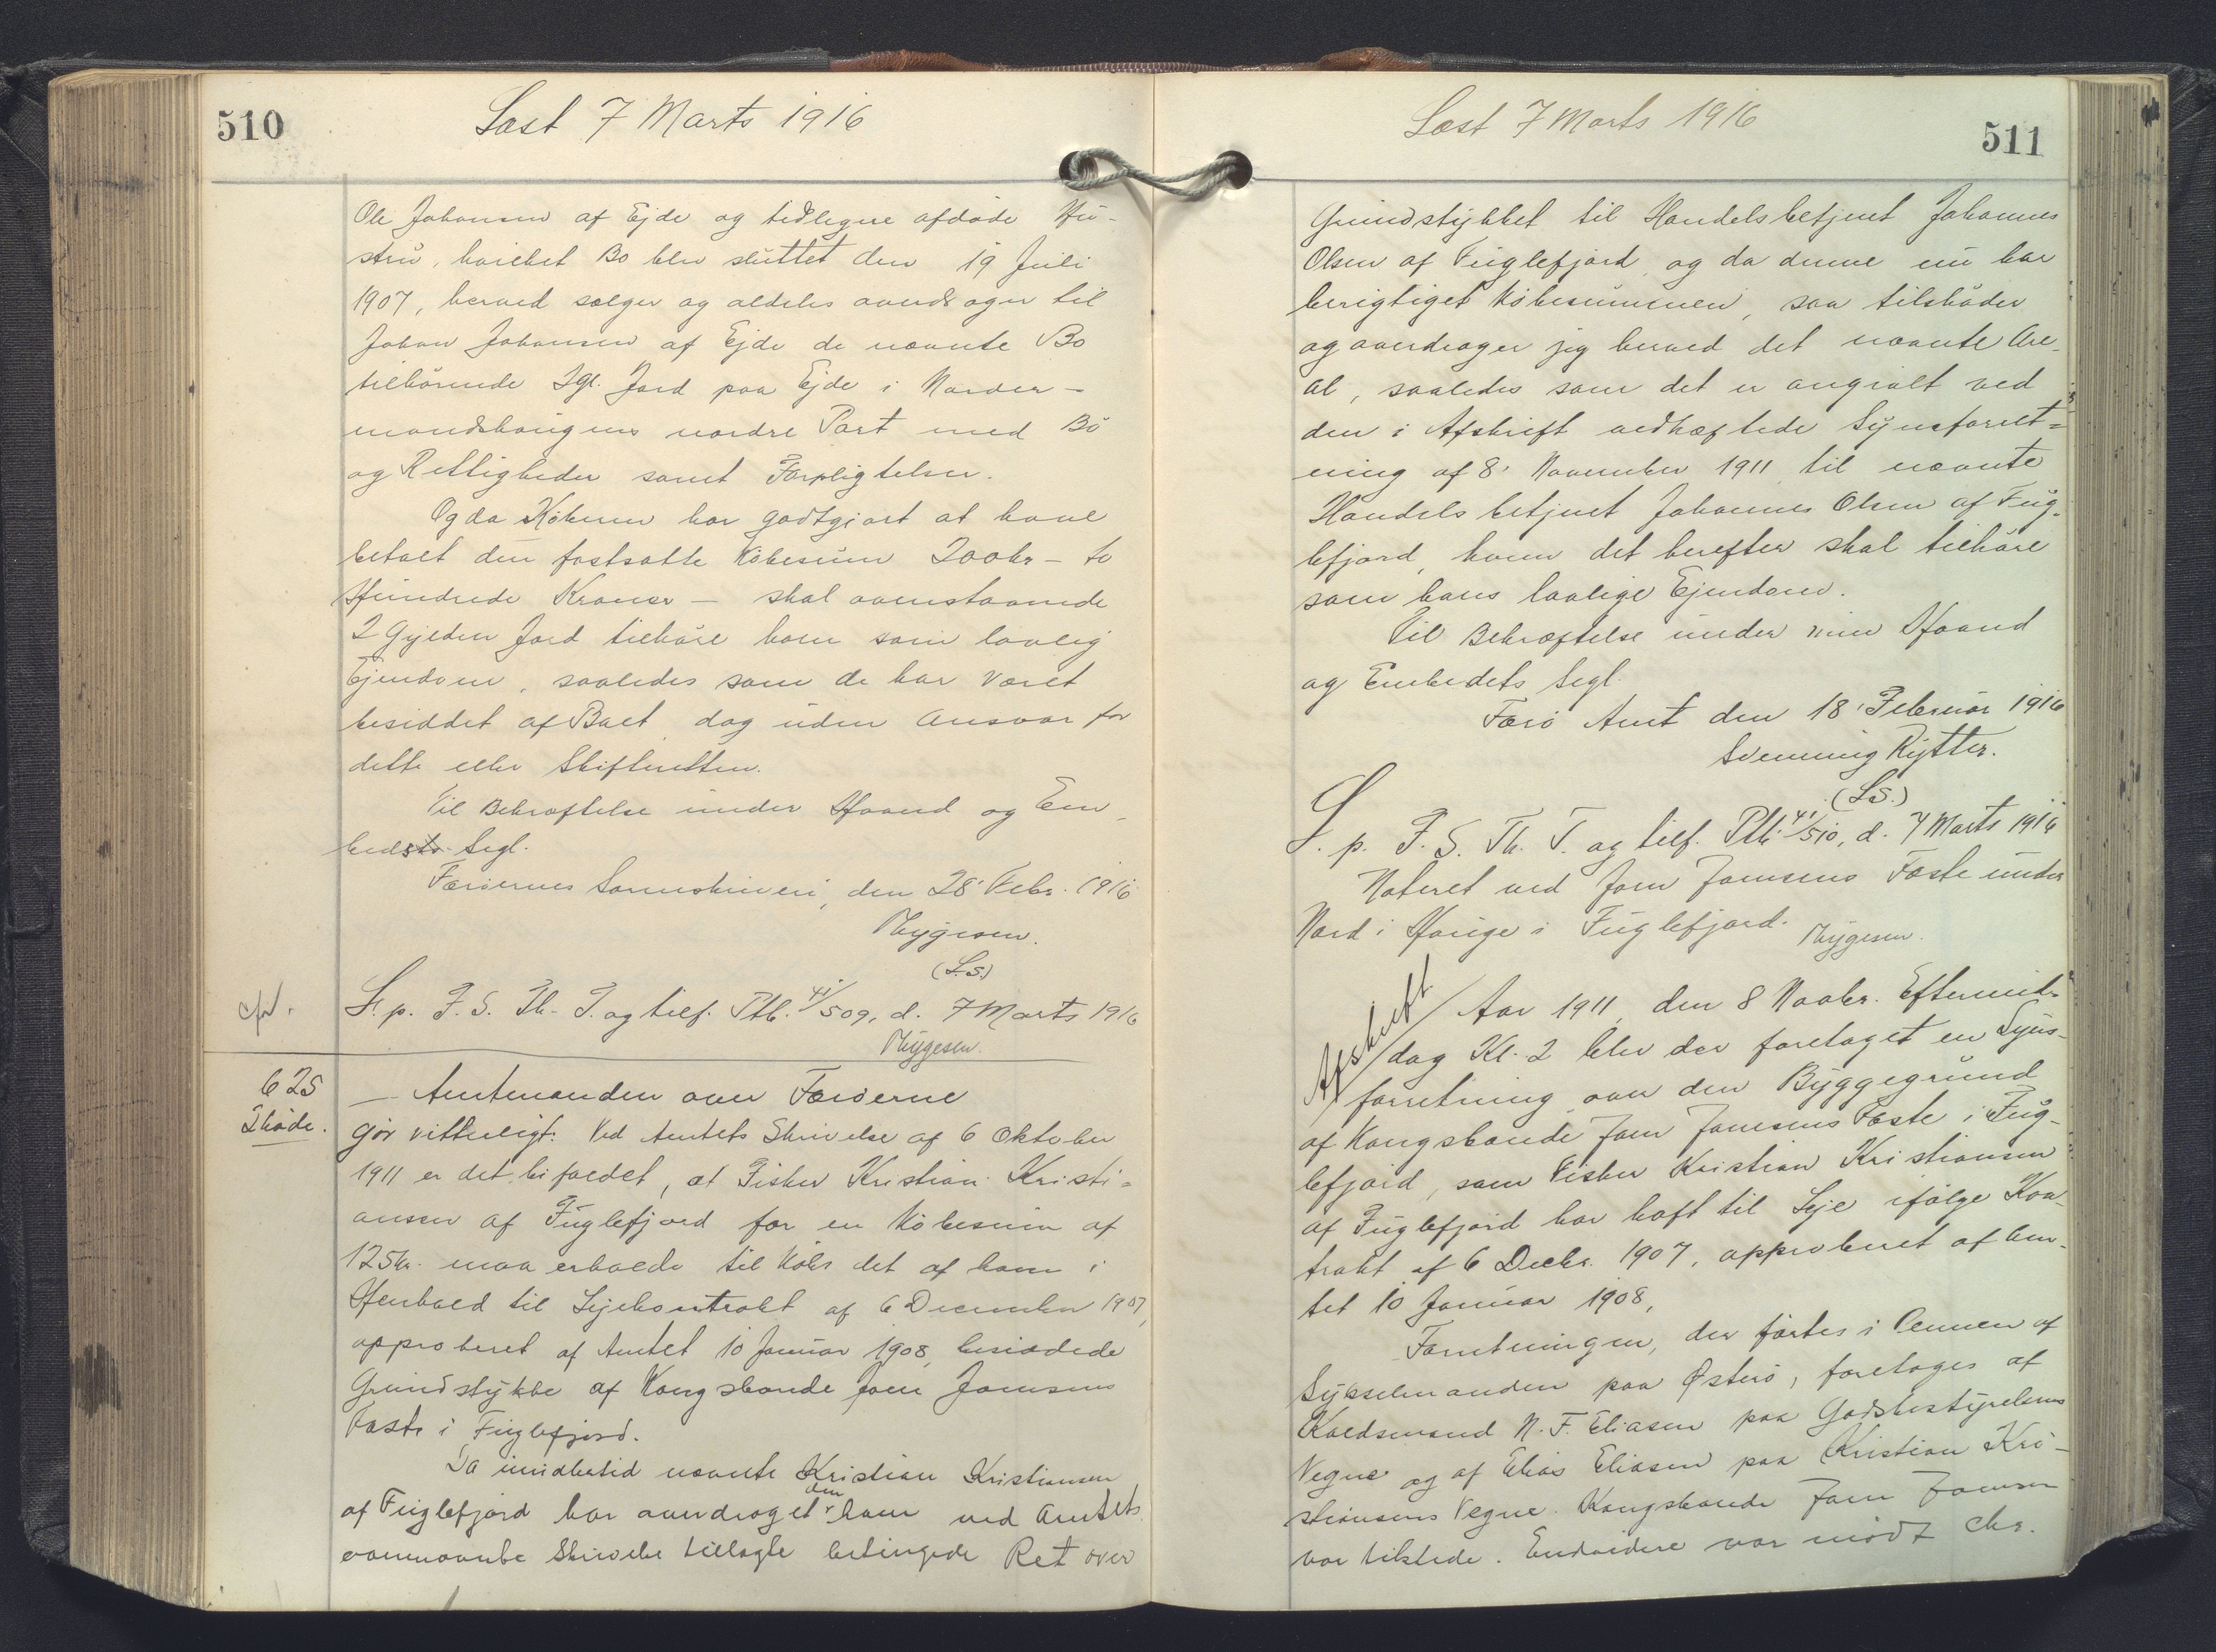 510
Læst 7 Marts 1916
Ole Johansen af Ejde og tidligere afdøde Hu-
stru, hvilket Bo blev sluttet den 19 Juli
1907, herved sælger og aldeles overdrager til
Johan Johansen af Ejde de nævnte Bo
tilhørende 2 Gl. Jord paa Ejde i Norder-
mandshaugens nordre Part med Bø
og Rettigheder samt Forpligtelser.
Og da Køberen har godtgjort at have
betalt den fastsatte Købesum 200 kr - to
Hundrede Kroner - skal ovenstaaende
2 Gylden Jord tilhøre ham som lovlig
Ejendom, saaledes som de har været
besiddet af Boet, dog uden Ansvar for
dette eller Skifteretten.
Til Bekræftelse under Haand og Em-
beds Segl.
Færøernes Sorenskriveri, den 28' Febr. 1916
Thygesen.
(L.S.)
L. p. F. S. Th. T. og tilf. Ptb. 41/509, d. 7 Marts 1916
Thygesen.
cfr.
625
Skøde.
- Amtmanden over Færøerne
gør vitterligt: Ved Amtets Skrivelse af 6 Oktober
1911 er det bifaldet, at Fisker Kristian Kristi=
ansen af Fuglefjord for en Købesum af
125 kr. maa erholde til Købs det af ham i
Henhold til Lejekontrakt af 6 December 1907,
approberet af Amtet 10 Januar 1908, besiddede
Grundstykke af Kongsbonde Joen Joensens
Fæste i Fuglefjord.
Da imidlertid nævnte Kristian Kristiansen
af Fuglefjord har overdraget den ham ved Amtets
ovennævnte Skrivelse tillagte betingede Ret over
Læst 7 Marts 1916
511
Grundstykket til Handelsbetjent Johannes
Olsen af Fuglefjord, og da denne nu har
berigtiget Købesummen, saa tilskøder
og overdrager jeg herved det nævnte Are-
al, saaledes som det er angivet ved
den i Afskrift vedhæftede Synsforret=
ning af 8' November 1911 til nævnte
Handelsbetjent Johannes Olsen af Fug-
lefjord, hvem det herefter skal tilhøre
som hans lovlige Ejendom.
Til Bekræftelse under min Haand
og Embedets Segl.
Færø Amt den 18' Februar 1916
Svenning Rytter.
(L.S.)
L. p. F. S. Th. T. og tilf. Ptb. 41/510, d. 7 Marts 1916
Noteret ved Joen Joensens Fæste under
Nord i Hauge i Fuglefjord. Thygesen.
Afskrift
Aar 1911 den 8 Novbr. Eftermid-
dag Kl. 2 blev der foretaget en Syns-
forretning over den Byggegrund
af Kongsbonde Joen Joensens Fæste i Fug-
lefjord, som Fisker Kristian Kristiansen
af Fuglefjord har haft til Leje ifølge Kon-
trakt af 6 Decbr. 1907, approberet af Am-
tet 10 Januar 1908,
Forretningen, der førtes i Pennen af
Sysselmanden paa Østerø, foretoges af
Voldsmand N. F. Eliasen paa Godsbestyrelsens
Vegne og af Elias Eliasen paa Kristian Kri-
stiansens Vegne. Kongsbonde Joen Joensen
var tilstede. Endvidere var mødt Chr.